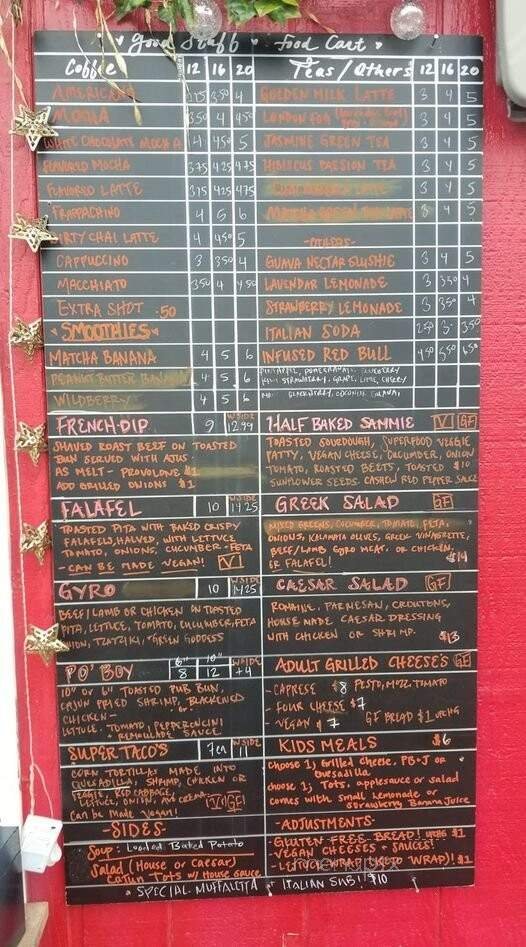 Good Stuff • Food Cart
Coffee 12 16 20
AMERICANO 3.50 4
MOCHA 350 4 450
WHITE CHOCOLATE MOCHA 4 450 5
FLAVORED MOCHA 375 425 475
FLAVORED LATTE 375 425 475
FRAPPACHINO 4 5 6
DIRTY CHAI LATTE 4 450 5
CAPPUCCINO 3 350 4
MACCHIATO 350 4 450
EXTRA SHOT .50
SMOOTHIES
MATCHA BANANA 4 5 6
PEANUT BUTTER BANANA 4 5 6
WILDBERRY 4 5 6
Teas/Others 12 16 20
GOLDEN MILK LATTE 3 4 5
LONDON FOG 3 4 5
JASMINE GREEN TEA 3 4 5
HIBISCUS PASSION TEA 3 4 5
LATTE 3 4 5
MATCHA GREEN TEA LATTE 3 4 5
-OTHERS-
GUAVA NECTAR SLUSHIE 3 4 5
LAVENDAR LEMONADE 3 350 4
STRAWBERRY LEMONADE 3 350 4
ITALIAN SODA 250 3 350
INFUSED RED BULL 450 550 650
KIWI STRAWBERRY, GRAPE, LIME, CHERRY
BLACKBERRY, COCONUT, GUAVA,
FRENCH-DIP 9 W SIDE 12.99
SHAVED ROAST BEEF ON TOASTED
BUN SERVED WITH AJUS.
AS MELT - PROVOLONE $1
ADD GRILLED ONIONS $1
HALF BAKED SAMMIE V GF
TOASTED SOURDOUGH, SUPERFOOD VEGGIE
PATTY, VEGAN CHEESE, CUCUMBER, ONION
TOMATO, ROASTED BEETS, TOASTED $10
SUNFLOWER SEEDS. CASHEW RED PEPPER SAUCE
FALAFEL 10 W SIDE 14.25
TOASTED PITA WITH BAKED CRISPY
FALAFELS, HALVED, WITH LETTUCE
TOMATO, ONIONS, CUCUMBER - FETA
- CAN BE MADE VEGAN! V
GREEK SALAD GF
MIXED GREENS, CUCUMBER, TOMATO, FETA,
ONIONS, KALAMATA OLIVES, GREEK VINAGRETTE,
BEEF/LAMB GYRO MEAT. OR CHICKEN,
ER FALAFEL! $14
GYRO 10 W SIDE 14.25
BEEF/LAMB OR CHICKEN ON TOASTED
PITA, LETTUCE, TOMATO, CUCUMBER, FETA
ONION, TZATZIKI + GREEN GODDESS
CAESAR SALAD GF
ROMAINE, PARMESAN, CROUTONS,
HOUSE MADE CAESAR DRESSING
WITH CHICKEN OR SHRIMP. $13
PO' BOY 6" 8 10" 12 W SIDE +4
10" OR 6" TOASTED PUB BUN,
CAJUN FRIED SHRIMP, BLACKENED
CHICKEN -
LETTUCE, TOMATO, PEPPERONCINI
REMOULADE SAUCE
ADULT GRILLED CHEESE'S GF
- CAPRESE $8 PESTO, MOZZ, TOMATO
- FOUR CHEESE $7
- VEGAN $7 GF BREAD $1 UPCHG
SUPER TACO'S 7ea W SIDE 11
CORN TORTILLAS MADE INTO
QUESADILLA, SHRIMP, CHICKEN OR
VEGGIE, RED CABBAGE,
LETTUCE, ONION, AND CREMA.
Can be Made Vegan! V GF
KIDS MEALS $6
choose 1) Grilled cheese, PB+J or
Quesadilla
choose 1) Tots, applesauce or salad
comes with small lemonade or
Strawberry Banana Juice
-SIDES-
Soup: Loaded Baked Potato
Salad (House or Caesar)
Cajun Tots w/ House Sauce
-ADJUSTMENTS-
- GLUTEN FREE BREAD! UPCHG $1
- VEGAN CHEESES + SAUCES!
- LETTUCE WRAP (KETO WRAP)! $1
* SPECIAL MUFFALETTA + ITALIAN SUB! $10